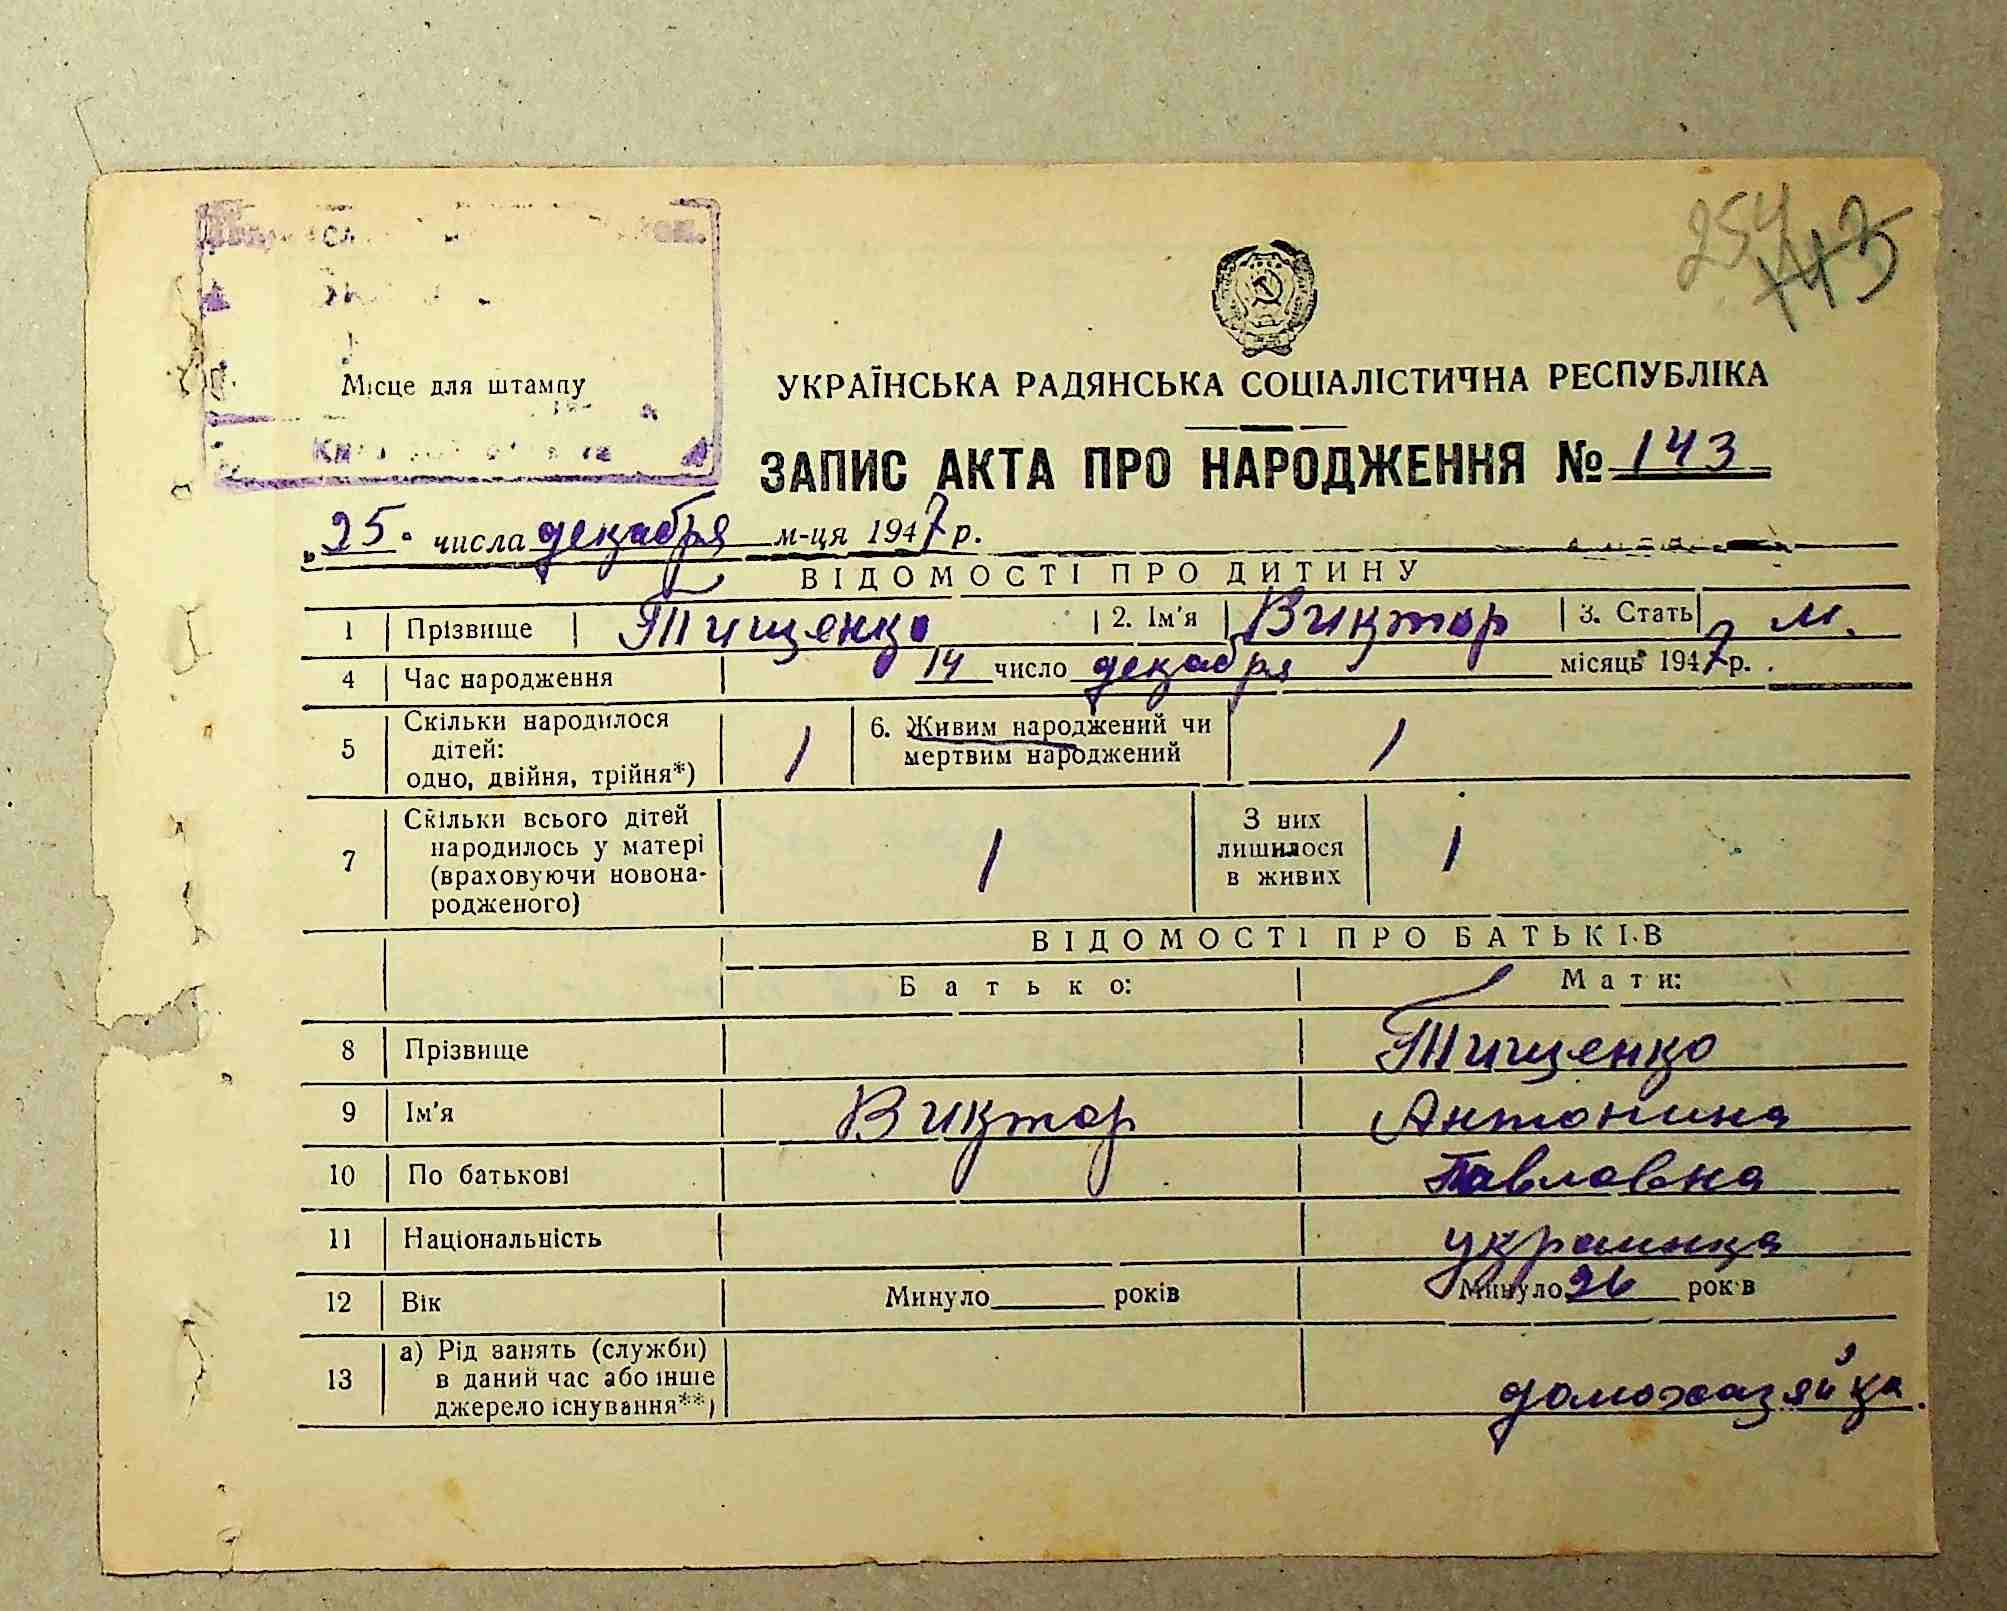 254
143
Місце для штампу
УКРАЇНСЬКА РАДЯНСЬКА СОЦІАЛІСТИЧНА РЕСПУБЛІКА
ЗАПИС АКТА ПРО НАРОДЖЕННЯ № 143
„25" числа декабря м-ця 1947 р.
ВІДОМОСТІ ПРО ДИТИНУ
1 Прізвище Тищенко 2. Ім'я Виктор 3. Стать м.
4 Час народження 14 число декабря місяць 1947 р.
5 Скільки народилося дітей: одно, двійня, трійня*) 1 6. Живим народжений чи мертвим народжений 1
7 Скільки всього дітей народилось у матері (враховуючи новонародженого) 1 З них лишилося в живих 1
ВІДОМОСТІ ПРО БАТЬКІВ
Батько: Мати:
8 Прізвище Тищенко
9 Ім'я Виктор Антонина
10 По батькові Павловна
11 Національність украинка
12 Вік Минуло років Минуло 26 років
13 а) Рід занять (служби) в даний час або інше джерело існування**) домохазяйка